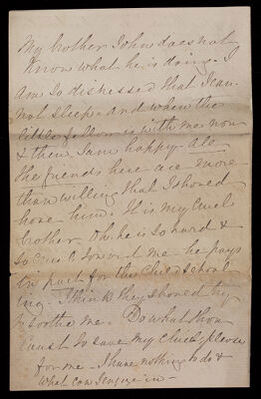 My brother John does not
Know what he is doing - I
Am So distressed that I can
not Sleep. And when the
little fellow is with me now
& then I am happy - All
the friends here are more
than willing that I should
have him. It is my Cruel
brother. Oh. he is so hard &
So cruel toward me he pays
in part for this Child School
ing. I think they should try
to soothe me. Do what thou
Canst to save my Child please
for me - I have nothing to do &
What can I engage in -